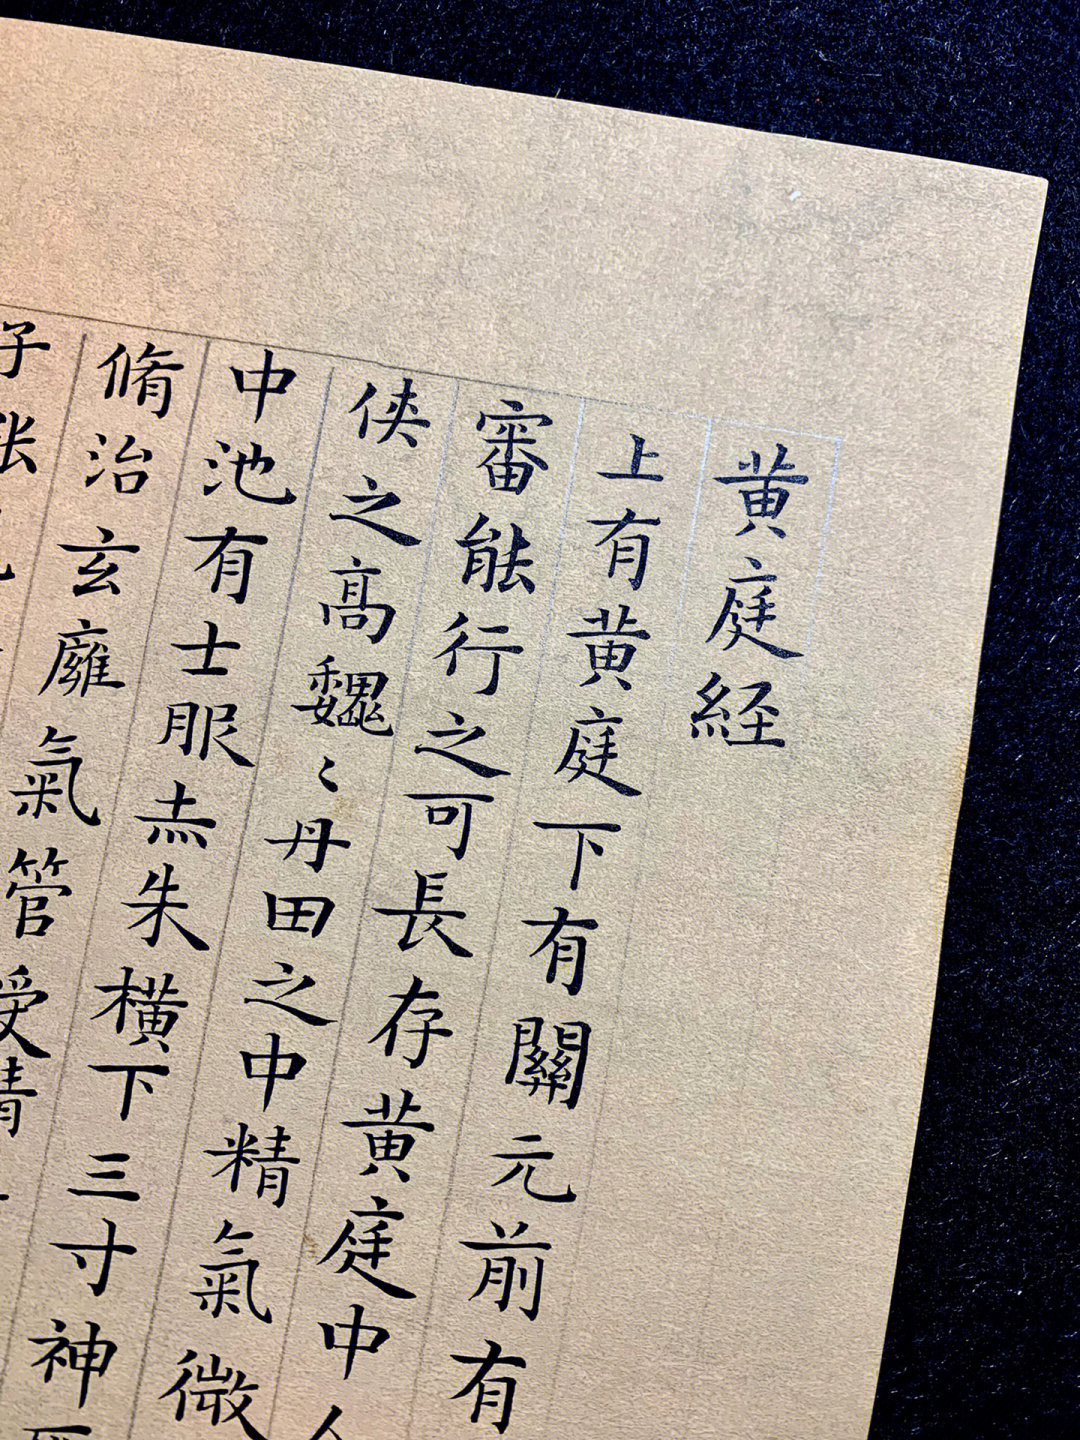 黄庭経
上有黄庭下有關元前有
審能行之可長存黄庭中人
侠之高巍〻丹田之中精氣微
中池有士服赤朱横下三寸神
脩治玄廱氣管受精
子